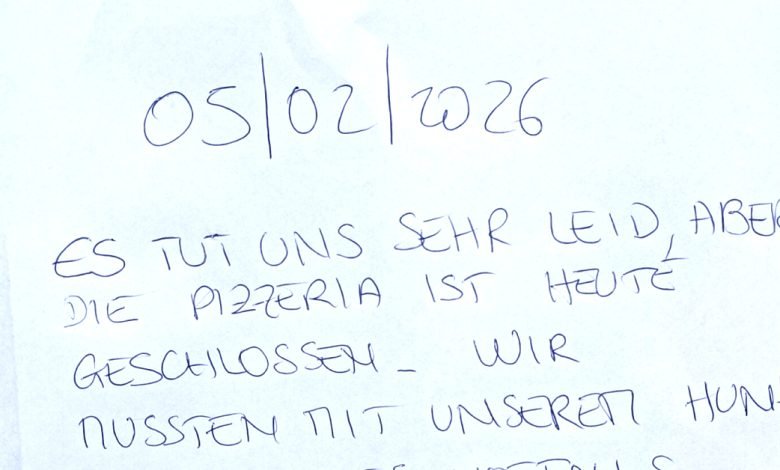 05/02/2026
ES TUT UNS SEHR LEID, ABER
DIE PIZZERIA IST HEUTE
GESCHLOSSEN_ WIR
MUSSTEN MIT UNSEREM